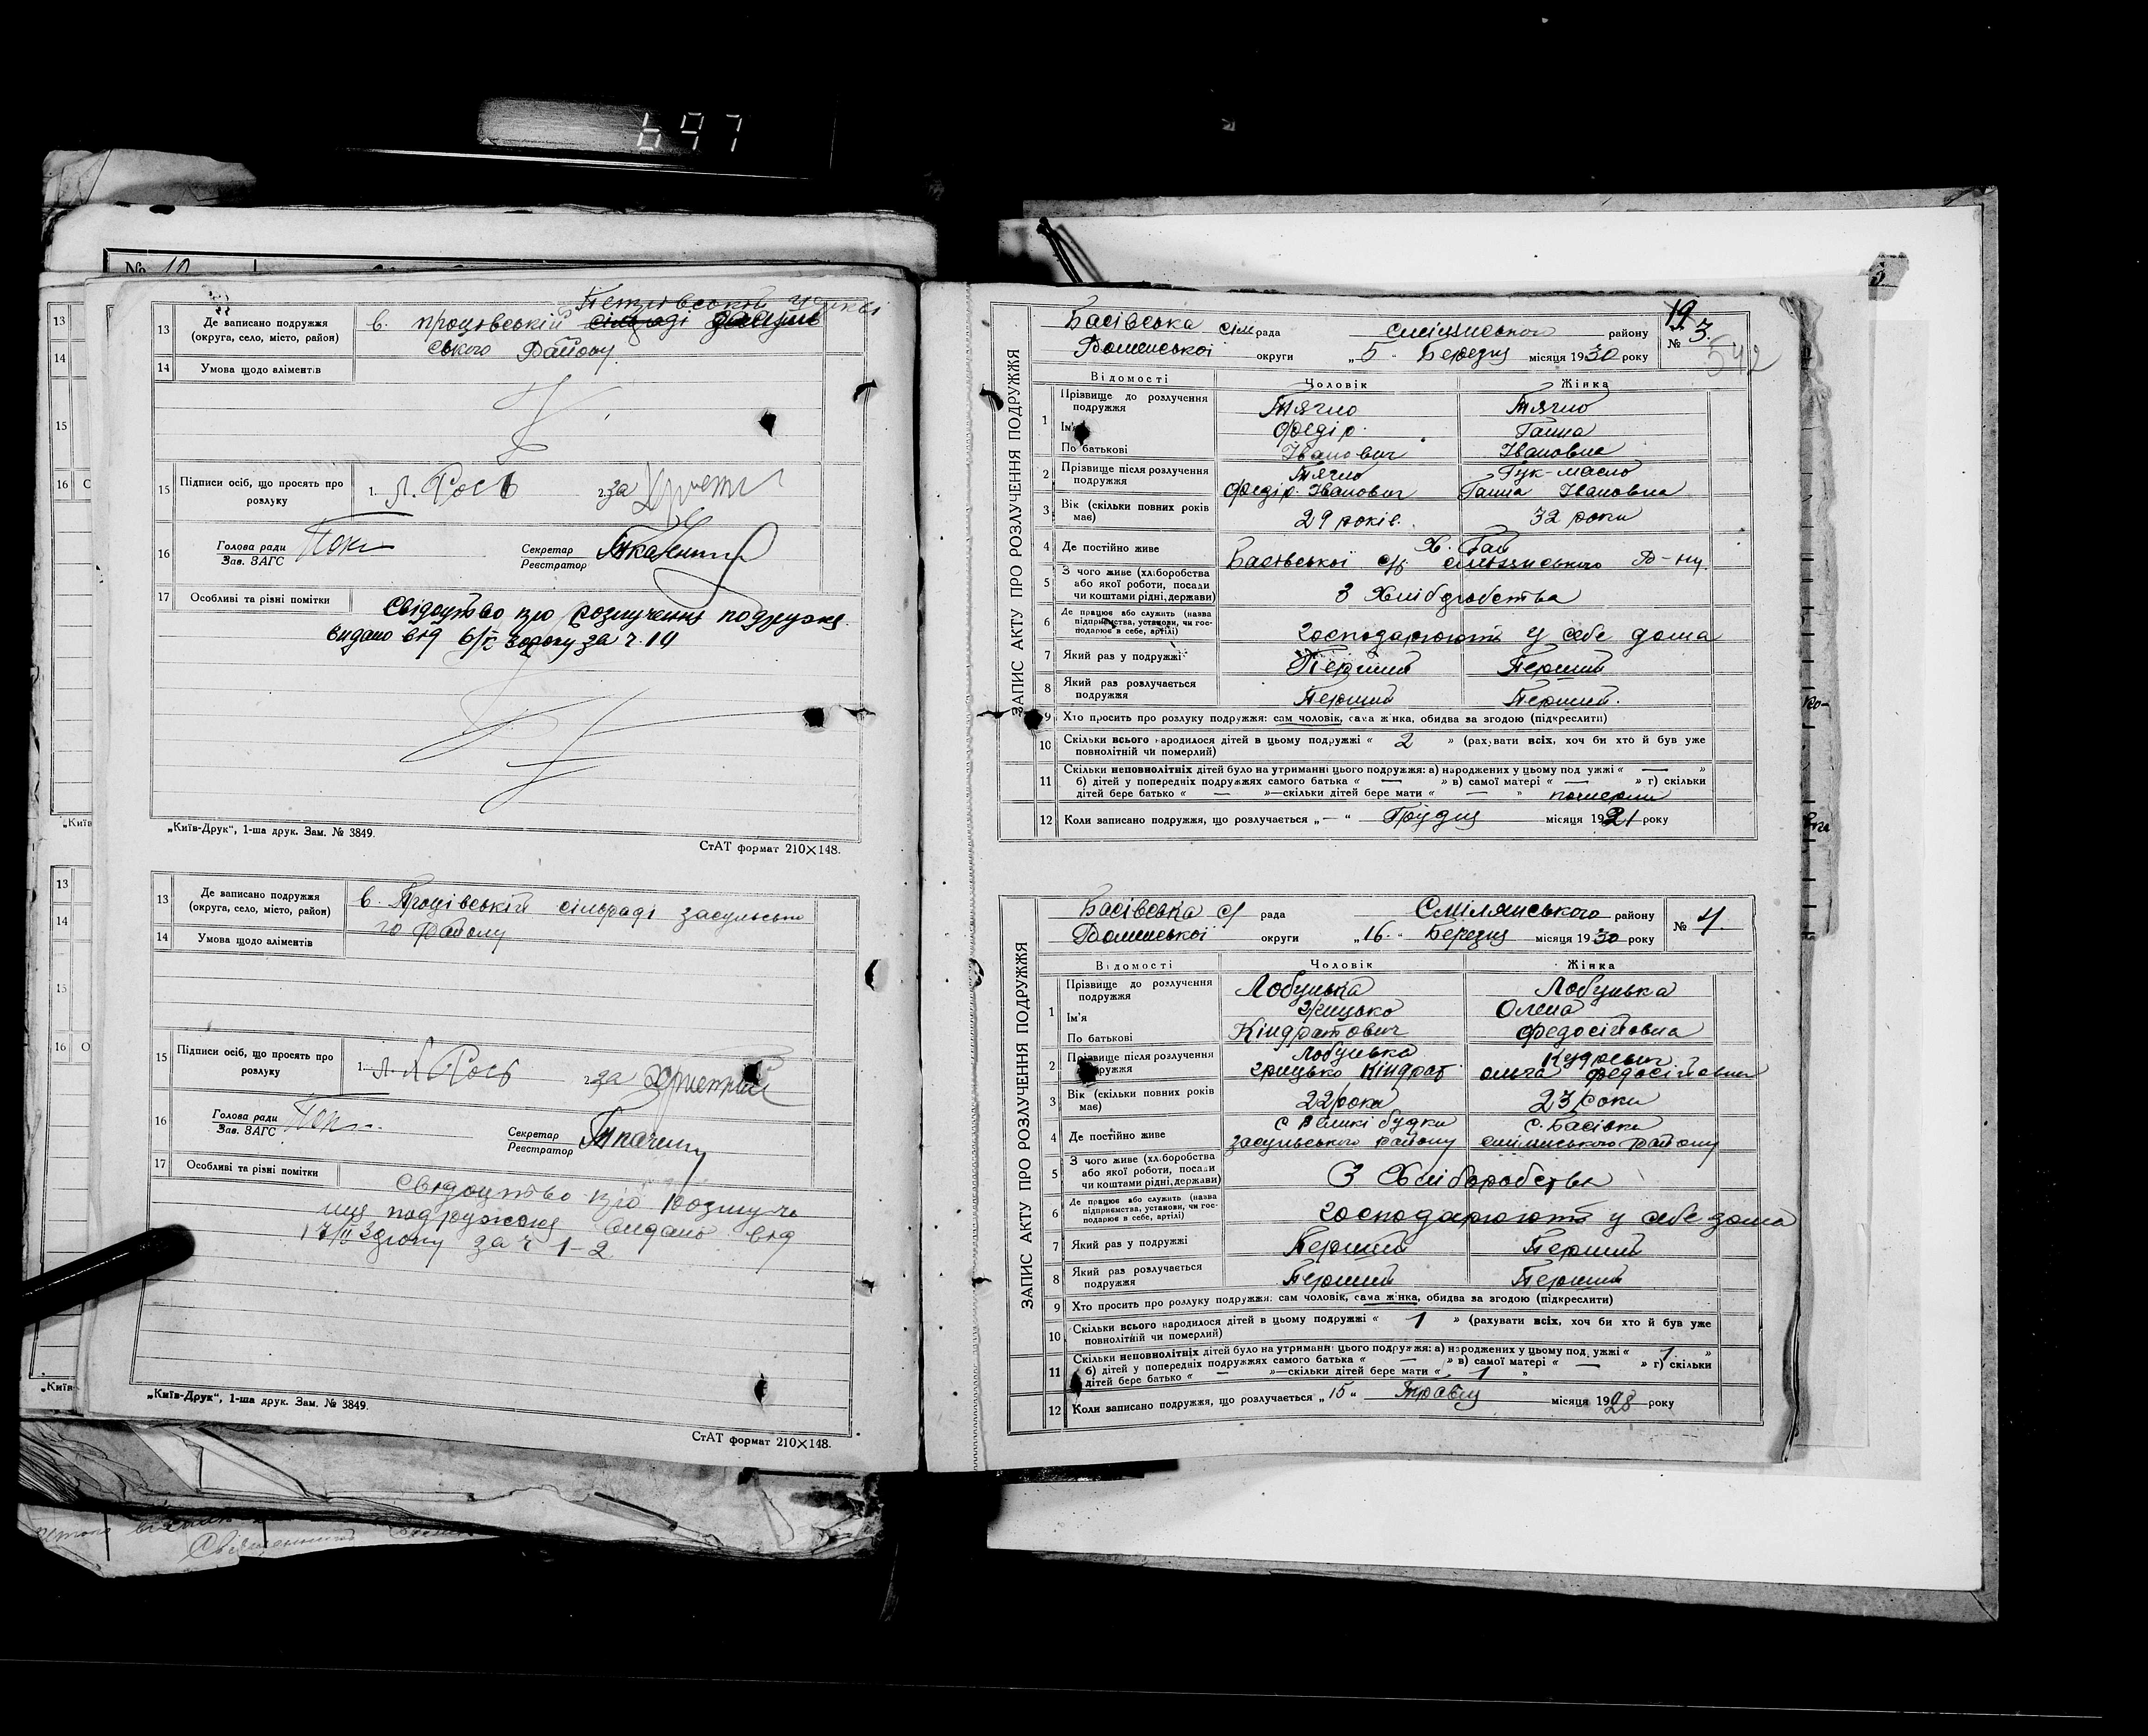 697
№ 10
13 Де записано подружжя (округа, село, місто, район)
в. процівській сільраді
ського Району
14 Умова щодо аліментів
15 Підписи осіб, що просять про розлуку
1. Л. Рось 2. за
16 Голова ради Зав. ЗАГС
Секретар Реєстратор
17 Особливі та різні помітки
Свідоцтво про розлучення подружжя
видано від
„Київ-Друк“, 1-ша друк. Зам. № 3849.
СтАТ формат 210×148.
13 Де записано подружжя (округа, село, місто, район)
в. Процівській сільраді засульсько
го Району
14 Умова щодо аліментів
15 Підписи осіб, що просять про розлуку
1. Л. Рось 2. за
16 Голова ради Зав. ЗАГС
Секретар Реєстратор
17 Особливі та різні помітки
Свідоцтво про розлуче
ня подружжя видано від
за ч 1-2
„Київ-Друк“, 1-ша друк. Зам. № 3849.
СтАТ формат 210×148.
ЗАПИС АКТУ ПРО РОЗЛУЧЕННЯ ПОДРУЖЖЯ
19
Басівська сіль рада смілянського району № 3.
Роменської округи „5“ Березня місяця 1930 року
542
Відомості Чоловік Жінка
1 Прізвище до розлучення подружжя Тягло Тягло
Ім'я Федір Ганна
По батькові Іванович Івановна
2 Прізвище після розлучення подружжя Тягло Гук-Масло
Федір Іванович Ганна Івановна
3 Вік (скільки повних років має) 29 років. 32 роки
4 Де постійно живе Х. Гай
Басівської с/р смілянського Р-ну.
5 З чого живе (хліборобства або якої роботи, посади чи коштами рідні, держави) З Хліборобства
6 Де працює або служить (назва підприємства, установи, чи господарює в себе, артілі) Господарюють у себе дома
7 Який раз у подружжі Перший Перший
8 Який раз розлучається подружжя Перший Перший.
9 Хто просить про розлуку подружжя: сам чоловік, сама жінка, обидва за згодою (підкреслити)
10 Скільки всього народилося дітей в цьому подружжі « 2 » (рахувати всіх, хоч би хто й був уже повнолітній чи померлий)
11 Скільки неповнолітніх дітей було на утриманні цього подружжя: а) народжених у цьому подружжі « — »
б) дітей у попередніх подружжях самого батька « — » в) самої матері « — » г) скільки
дітей бере батько « — »—скільки дітей бере мати « — » померли
12 Коли записано подружжя, що розлучається „—“ Грудня місяця 1921 року
ЗАПИС АКТУ ПРО РОЗЛУЧЕННЯ ПОДРУЖЖЯ
Басівська с/ рада Смілянського району № 4.
Роменської округи „16“ Березня місяця 1930 року
Відомості Чоловік Жінка
1 Прізвище до розлучення подружжя Лобунька Лобунька
Ім'я Грицько Олена
По батькові Кіндратович Федосіївна
2 Прізвище після розлучення подружжя Лобунька
Грицько Кіндрат Ольга Федосіївна
3 Вік (скільки повних років має) 22 роки 23 роки
4 Де постійно живе с Великі будки с. Басівка
засульського району смілянського району
5 З чого живе (хліборобства або якої роботи, посади чи коштами рідні, держави) З Хліборобства
6 Де працює або служить (назва підприємства, установи, чи господарює в себе, артілі) Господарюють у себе дома
7 Який раз у подружжі Перший Перший
8 Який раз розлучається подружжя Перший Перший
9 Хто просить про розлуку подружжя: сам чоловік, сама жінка, обидва за згодою (підкреслити)
10 Скільки всього народилося дітей в цьому подружжі « 1 » (рахувати всіх, хоч би хто й був уже повнолітній чи померлий)
11 Скільки неповнолітніх дітей було на утриманні цього подружжя: а) народжених у цьому подружжі « 1. »
б) дітей у попередніх подружжях самого батька « — » в) самої матері « — » г) скільки
дітей бере батько « — »—скільки дітей бере мати « 1 »
12 Коли записано подружжя, що розлучається „15“ Травня місяця 1928 року